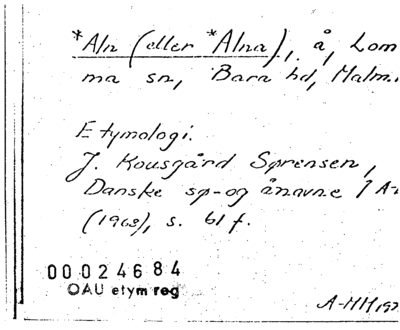 *Aln (eller *Alna), å, Lom
ma sn, Bara hd, Malm.
Etymologi.
J. Kousgård Sørensen,
Danske sø- og ånavne I A-
(1968), s. 61 f.
00024684
OAU etym reg
A-MH 197